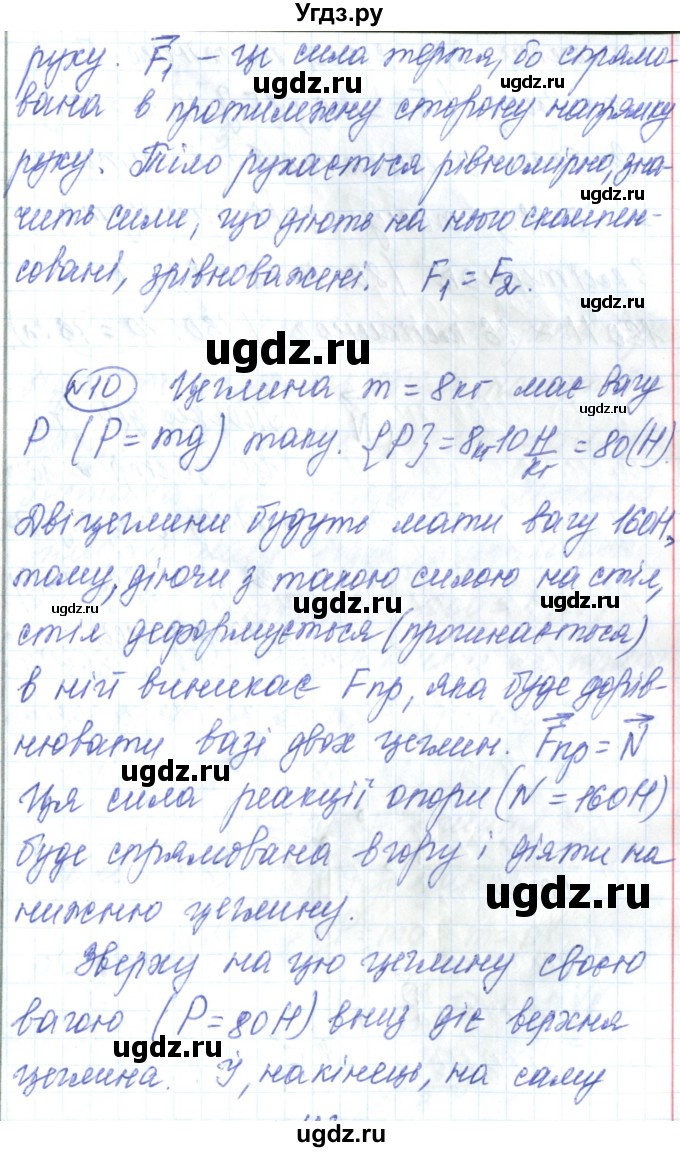 Угдз.ру
руху. F₁ – це сила тертя, бо спрямо-
ugdz.ru
вана в протилежну сторону напрямку
ugdz.ru
руху. Тіло рухається рівномірно, зна-
ugdz.ru
чить сили, що діють на нього скомпен-
совані, зрівноважені. F₁ = F₂.
ugdz.ru
№10 Цеглина m = 8кг має вагу
P (P = mg) таку. {P} = 8кг 10 Н/кг = 80(Н).
ugdz.ru
ugdz.ru
Дві цеглини будуть мати вагу 160Н,
тому, діючи з такою силою на стіл,
ugdz.ru
ugdz.ru
ugdz.ru
стіл деформується (прогинається)
в ній виникає Fпр, яка буде дорів-
нювати вазі двох цеглин. Fпр = N
ugdz.ru
ugdz.ru
Ця сила реакції опори (N = 160Н)
буде спрямована вгору і діяти на
ugdz.ru
нижню цеглину.
Зверху на цю цеглину своєю
вагою (P = 80Н) вниз діє верхня
ugdz.ru
ugdz.ru
цеглина. І, накінець, на саму
ugdz.ru